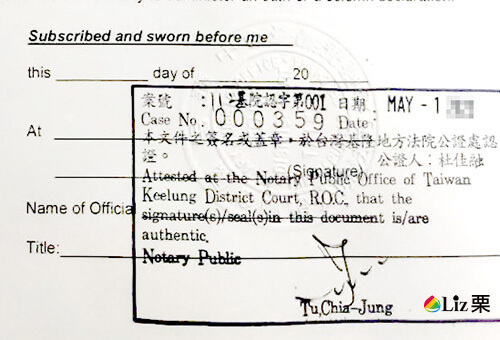 Subscribed and sworn before me
this day of , 20
案號 : 基院認字第001 日期 MAY - 1
Case No. 000359 Date:
At
本文件之簽名或蓋章,於台灣基隆地方法院公證處認
證。 公證人:杜佳融
(Signature)
Attested at the Notary Public Office of Taiwan
Keelung District Court, R.O.C, that the
Name of Official
signature(s)/seal(s)in this document is/are
authentic.
Title:
Notary Public
Tu,Chia-Jung
Liz栗